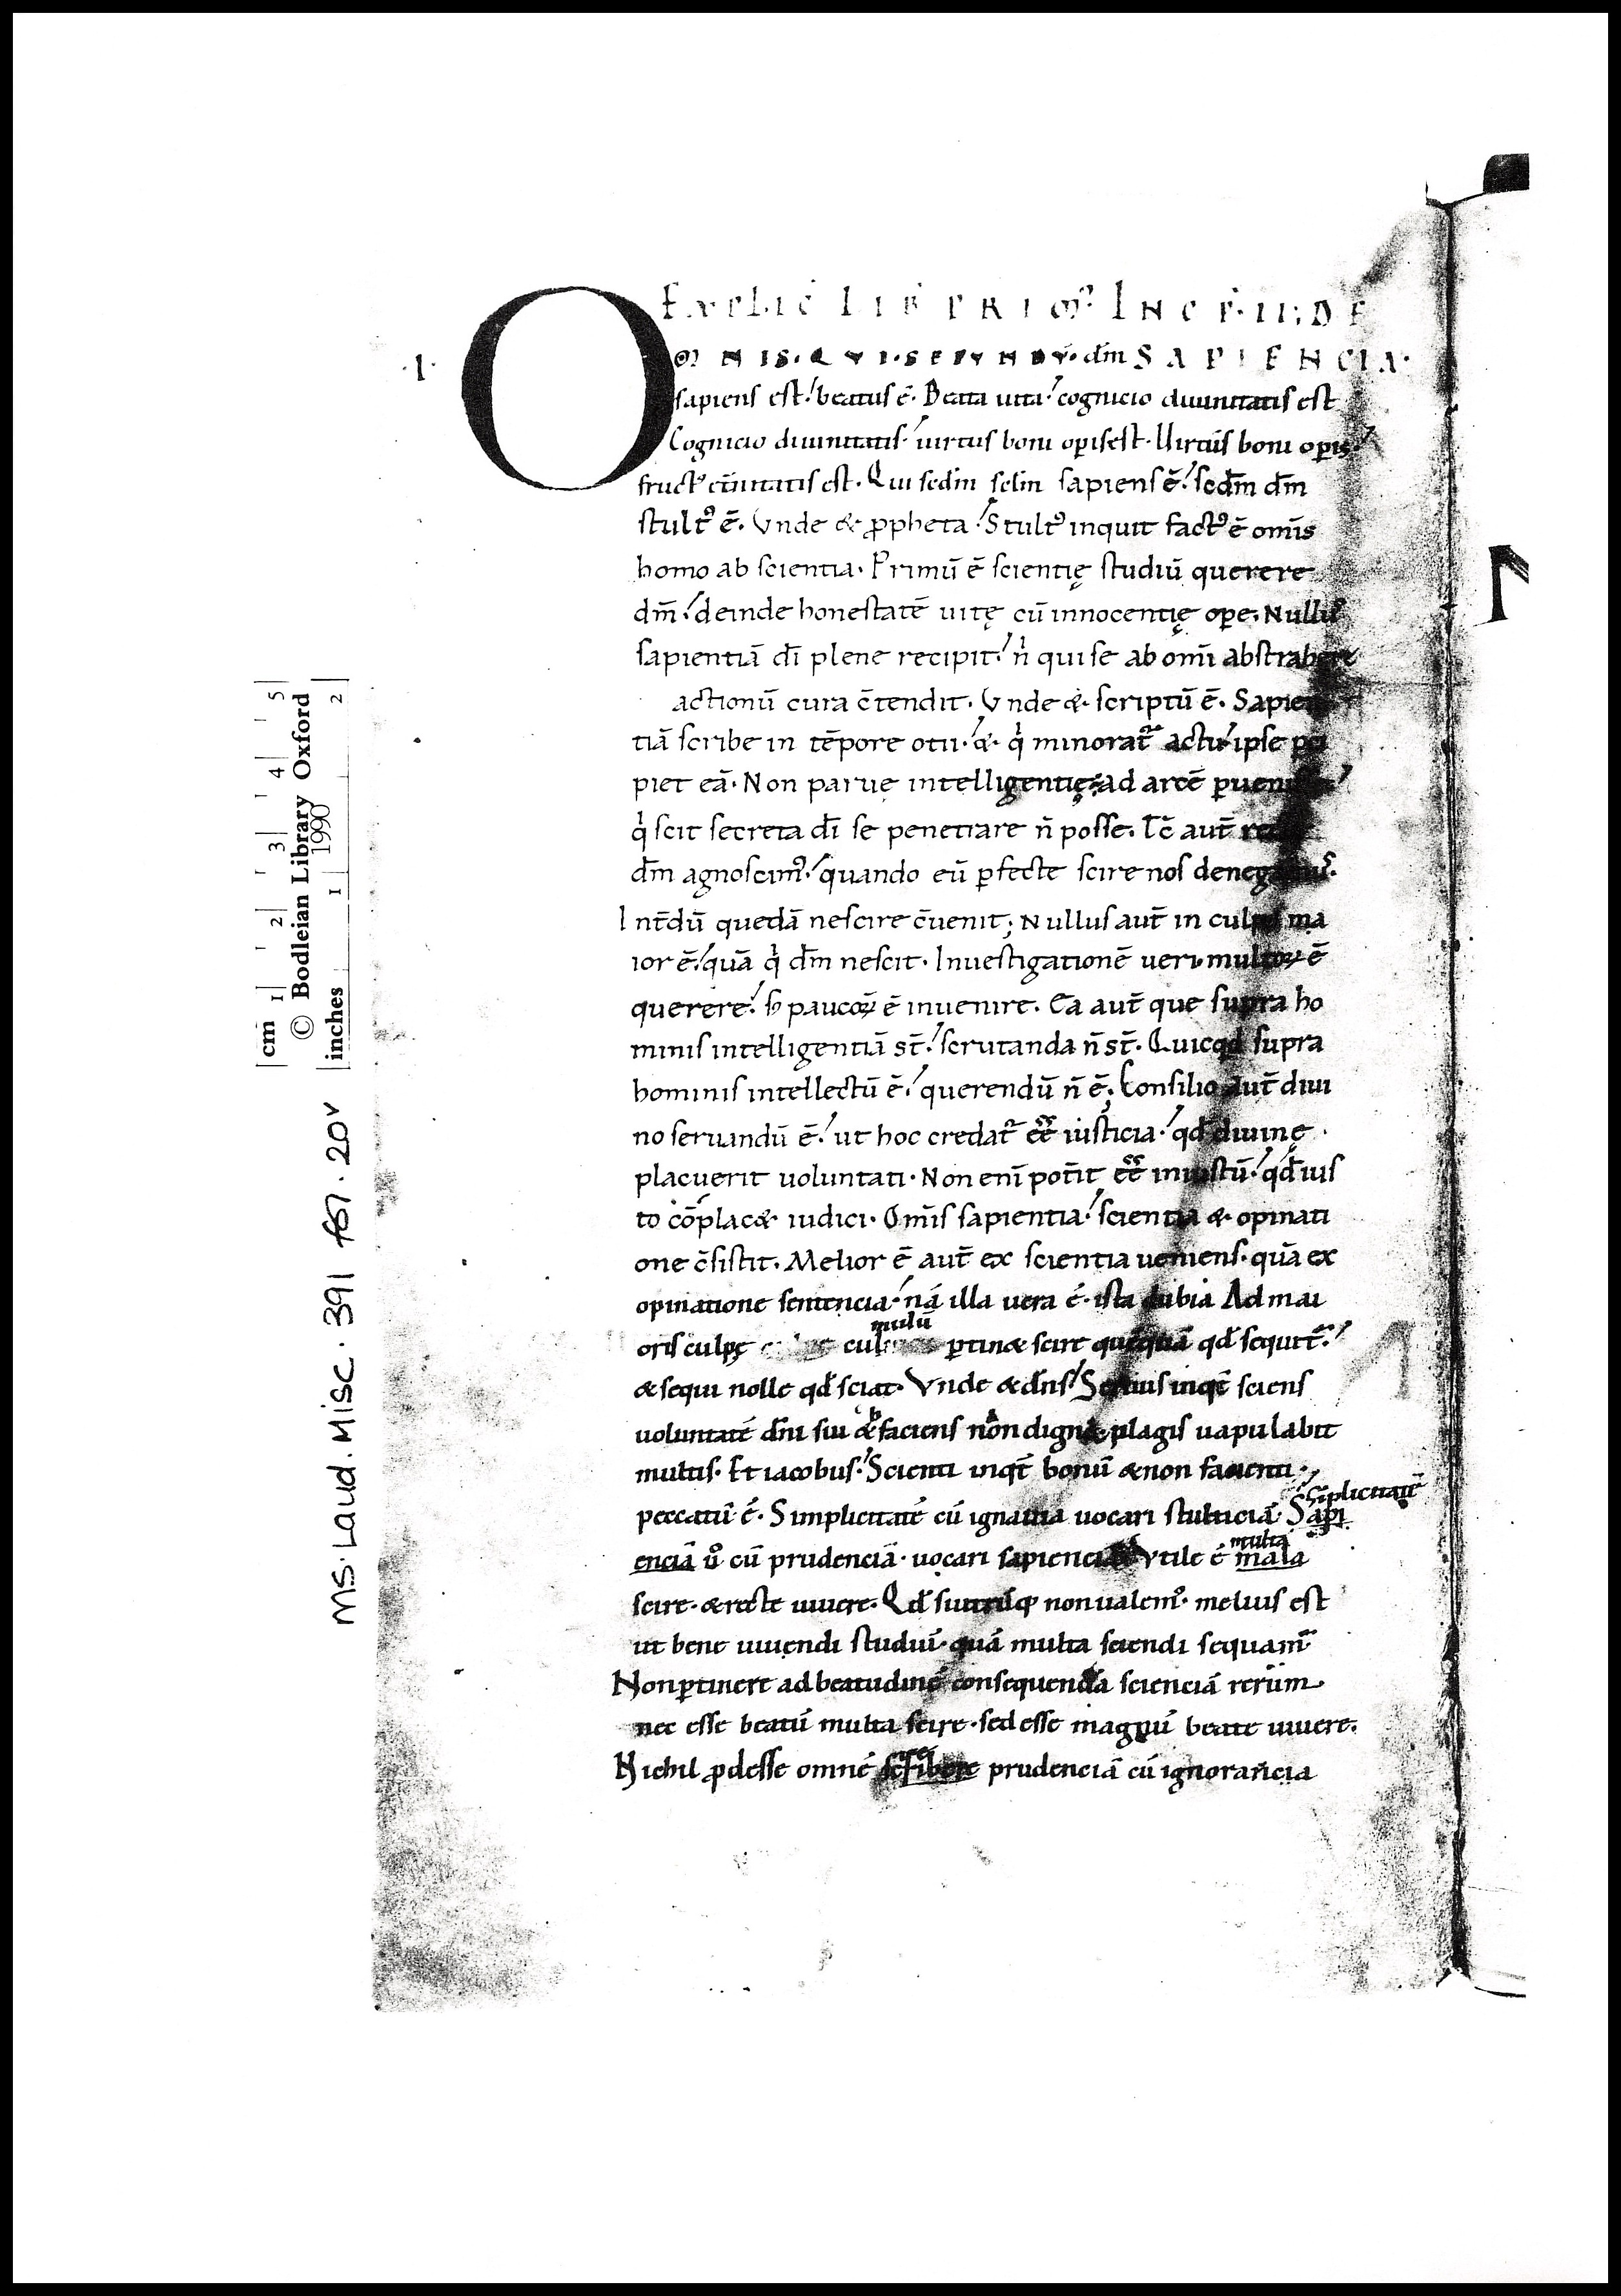 Explic̄ Lib̄ Primꝰ Incp̄ · II · DE
·I· OMNIS · QVI · SECVNDV̄ · dm̄ SAPIENCIA ·
sapiens est / beatus ē · Beata uita / cognicio diuinitatis est
Cognicio diuinitatis / uirtus boni operis est · Uirtus boni opis /
fructꝰ et̄nitatis est · Qui sedm̄ sclm̄ sapiens ē / sedm̄ dm̄
stultꝰ ē · Vnde & ꝓpheta / Stultꝰ inquit factꝰ ē omīs
homo ab scientia · Primū ē scientię studiū querere
dm̄ / deinde honestatē uitę cū innocentię ope · Nullus
sapientiā dī plene recipit / n̄ qui se ab omī abstrahere
actionū cura c̄tendit · Vnde & scriptū ē · Sapien
tiā scribe in tēpore otii / & q̍ minorat᷑ actu / ipse pci
piet eā · Non paruę intelligentię ad arcē ꝑuenisse /
q̍ scit secreta dī se penetrare n̄ posse · Tc̄ aut̄
dm̄ agnoscimꝰ / quando eū ꝑfecte scire nos denegamus ·
Int̄dū quedā nescire c̄uenit ; Nullus aut̄ in culpa ma
ior ē / quā q̍ dm̄ nescit · Inuestigationē ueri multoꝝ ē
querere / sꝫ paucoꝝ ē inuenire · Ea aut̄ que supra ho
minis intelligentiā st̄ / scrutanda n̄ st̄ · Quicqd supra
hominis intellectū ē / querendū n̄ ē ; Consilio aut̄ diui
no seruandū ē / ut hoc credat᷑ ēē iusticia / qd̄ diuinę
placuerit uoluntati · Non enī pot̄it ēē iniustū / qd̄ ius
to cōplac& iudici · Omīs sapientia / scientia & opinati
one c̄sistit · Melior ē aut̄ ex scientia ueniens · quā ex
opinatione sentencia / nā illa uera ē · ista dubia Ad mai
oris culpę cul ꝑtin& scire quēquā qd̄ sequit᷑ /
& sequi nolle qd̄ sciat · Vnde & dn̄s / Seruus inqt̄ sciens
uoluntatē dn̄i sui & faciens non digna plagis uapulabit
multis · Et iacobus / Scienti inqt̄ bonū & non facienti ·
siplicitatē
peccatū ē · Simplicitatē cū ignauia uocari stulticiā · Sapi
multa
enciā ů cū prudenciā · uocari sapienciā Vtile ē mala
scire · & recte uiuere · Qd̄ si utrūqꝫ non ualemꝰ · melius est
ut bene uiuendi studiū · quā multa sciendi sequam᷑
Non ꝑtinere ad beatudinē consequendā scienciā rerum ·
nec esse beatū multa scire · sed esse magnū beate uiuere ·
Nichil ꝓdesse omnē prudenciā cū ignorancia
MS. Laud. Misc. 391 fol. 20v
cm 1 2 3 4 5
© Bodleian Library Oxford
1990
inches 1 2